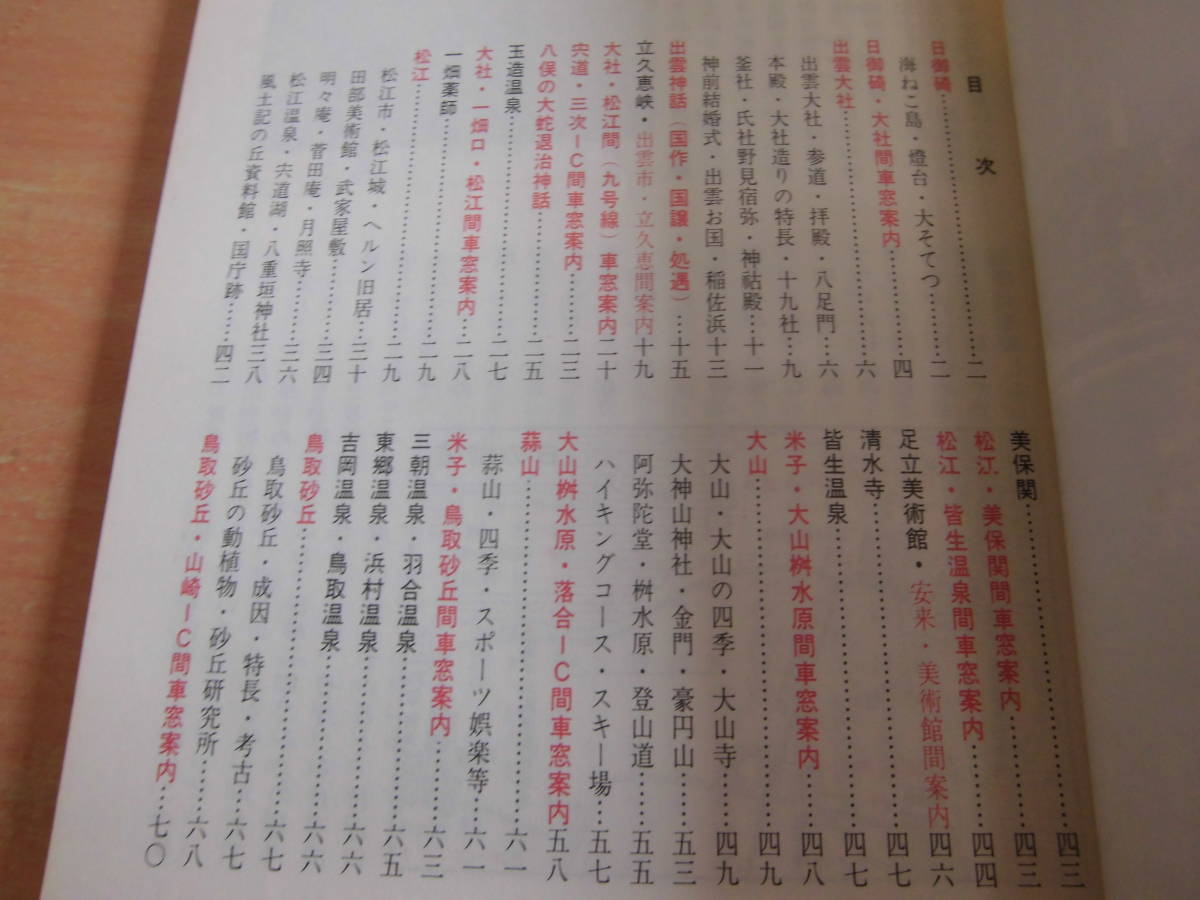 目次
日御碕……二
海ねこ島・燈台・大そてつ……二
日御碕・大社間車窓案内……四
出雲大社……六
出雲大社・参道・拝殿・八足門……六
本殿・大社造りの特長・十九社…九
釜社・氏社野見宿弥・神祜殿…十一
神前結婚式・出雲お国・稲佐浜十三
出雲神話(国作・国譲・処遇)…十五
立久恵峡・出雲市・立久恵間案内十九
大社・松江間(九号線)車窓案内二十
宍道・三次IC間車窓案内……二三
八俣の大蛇退治神話……二五
玉造温泉……二七
大社・一畑口・松江間車窓案内…二八
一畑薬師……二九
松江……二九
松江市・松江城・ヘルン旧居…三十
田部美術館・武家屋敷……三四
明々庵・菅田庵・月照寺……三六
松江温泉・宍道湖・八重垣神社三八
風土記の丘資料館・国庁跡……四二
美保関……四三
松江・美保関間車窓案内……四三
松江・皆生温泉間車窓案内……四四
足立美術館・安来・美術館間案内四六
清水寺……四七
皆生温泉……四七
米子・大山桝水原間車窓案内……四八
大山……四九
大山・大山の四季・大山寺……四九
大神山神社・金門・豪円山……五三
阿弥陀堂・桝水原・登山道……五五
ハイキングコース・スキー場……五七
大山桝水原・落合IC間車窓案内五八
蒜山……六一
蒜山・四季・スポーツ娯楽等…六一
米子・鳥取砂丘間車窓案内……六三
三朝温泉・羽合温泉……六五
東郷温泉・浜村温泉……六六
吉岡温泉・鳥取温泉……六六
鳥取砂丘……六七
鳥取砂丘・成因・特長・考古……六七
砂丘の動植物・砂丘研究所……六八
鳥取砂丘・山崎IC間車窓案内…七〇